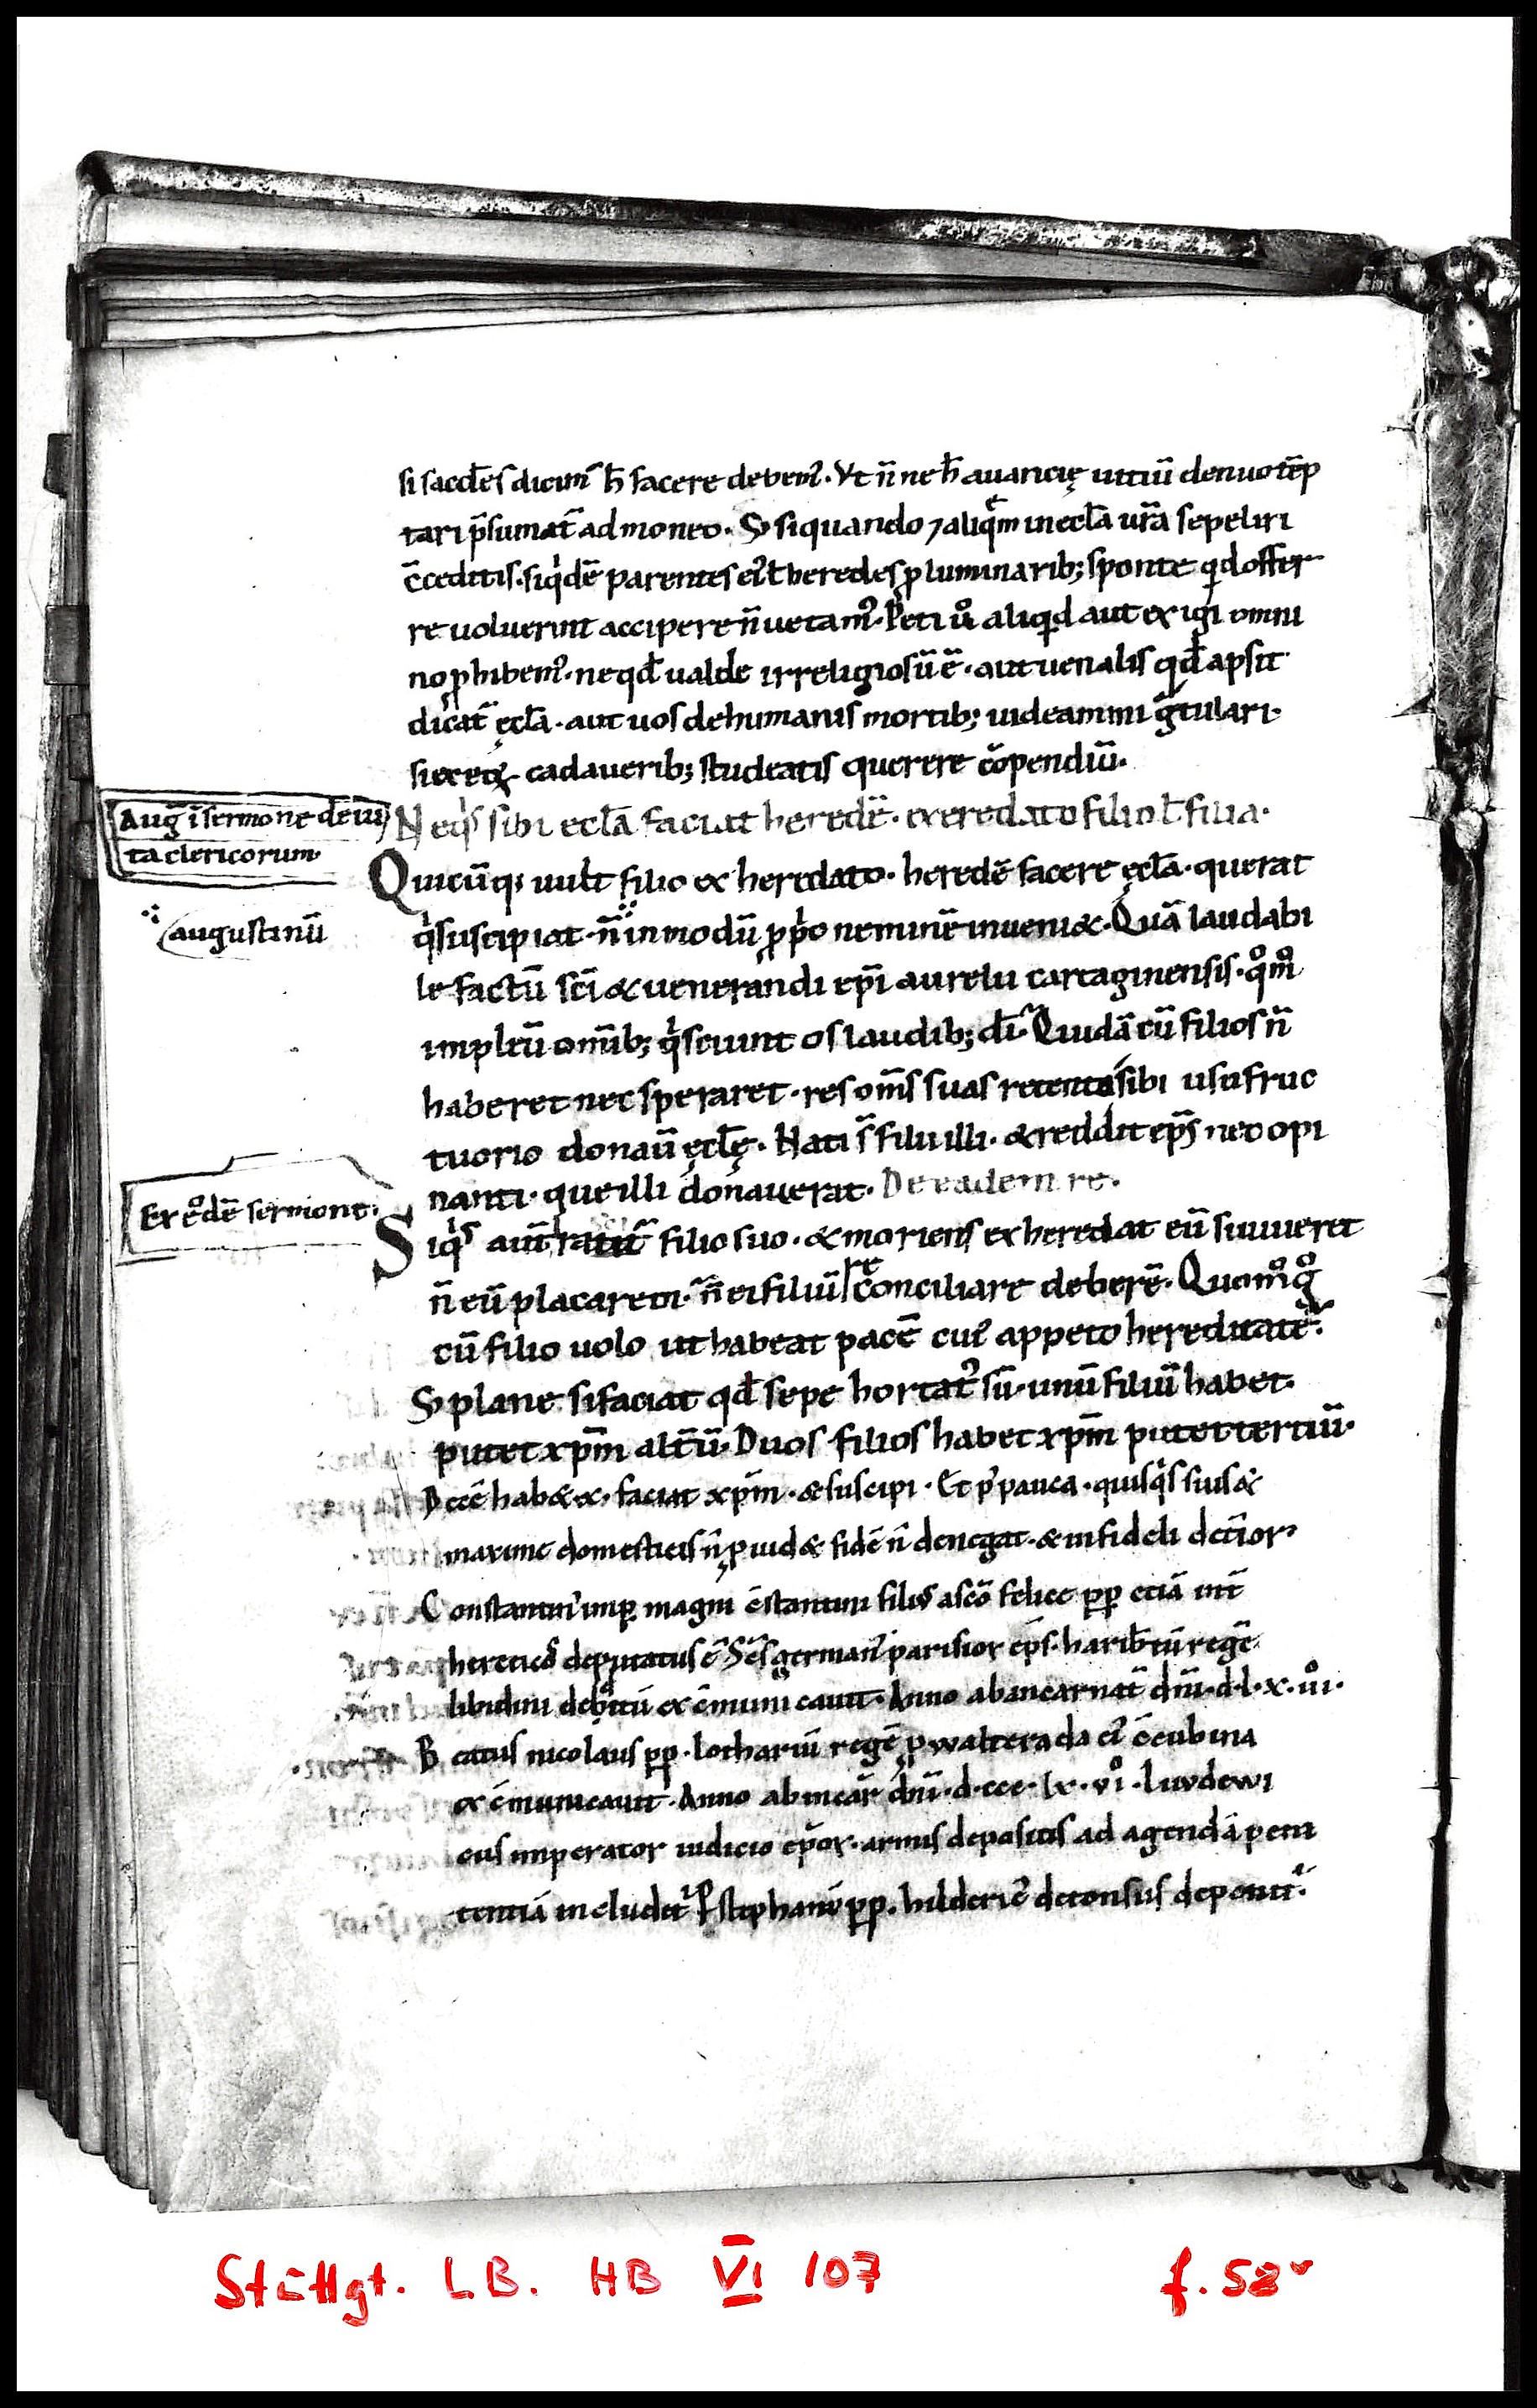 si sacdẽs dicim᷒ h̄ facere debem᷒. Vt ñ ne h̄ auaricię uitiũ denuo tẽp
tari p̃sumat᷑ admoneo. S; si quando ⁊ aliquẽm in ecl̃a ur̃a sepeliri
c̃ceditis. siq̇dẽ parentes ei᷒ ł heredes ꝓ luminarib; sponte qid offer
re uoluerint accipere ñ uetam᷒. Peti ů aliqid aut exigi omni
no ꝓhibem᷒. ne qđ ualde irreligiosũ ẽ. aut uenalis qđ apsit
dicat᷑ ęcl̃a. aut uos de humanis mortib; uideamini gͣtulari.
si ex eoꝝ cadauerib; studeatis querere cõpendiũ.
Aug̃ ĩ sermone de ui
ta clericorum.
Neq̇s sibi ecl̃a faciat heredẽ. exeredato filio ł filia.
Quicũq; uult filio exheredato. heredẽ facere ęcl̃ã. querat
augustinũ
q̇ suscipiat. ñ in modũ ꝓpͥo neminẽ inueni&. Quã laudabi
le factũ sc̃i & uenerandi ep̃i aurelii cartaginensis. qͦmͦ
impleũ om̃ib; q̇ sciunt os laudib; dĩ. Quidã cũ filios ñ
haberet nec speraret. res om̃s suas retento sibi usufruc
tuorio donauĩ ęcl̃ę. Nati s̃ filii illi. & reddit ep̃s nec opi
nanti. que illi donauerat. De eadem re.
Ex eͦdẽ sermone.
Siq̇s aut̃ irat᷑ filio suo. & moriens exheredat eũ si uiueret
ñ eũ placarem. ñ ei filiũ reconciliare deberẽ. Quomͦ gͦ
cũ filio uolo ut habeat pacẽ cui᷒ appeto hereditatẽ.
S; plane si faciat qđ sepe hortat᷒ sũ. unũ filiũ habet.
putet xp̃m alt̃ũ. Duos filios habet xp̃m putet tertiũ.
Decẽ hab& .x. faciat xp̃m. & suscipi. Et p᷒ pauca. quisq̇s suis &
maxime domesticis ñ ꝓuid& fidẽ ñ denegat. & infideli det̃ior
Constantin᷒ imp̲ magni c̃stantini filius a sc̃o felice pp̲ etiã int̃
hereticos deputatus ẽ. Sc̃s german᷒ parisior ep̃s. haribtũ regẽ
libidini debitũ exc̃municauit. Anno ab incarnat̃ dñi. d.l.x.uiͦ.
Beatus nicolaus pp̲. lothariũ regẽ ꝓ walterada ei᷒ c̃cubina
exc̃municauit. Anno ab incar̃ dñi. d.ccc.lx.vͦi. luvdewi
cus imperator iudicio ep̃or. armis depositis ad agendã peni
tentiã includit᷑. P̲ stephanũ pp̲. hilderic᷒ detonsus deponit᷑.
Stuttgt. LB. HB VI 107 f. 52v